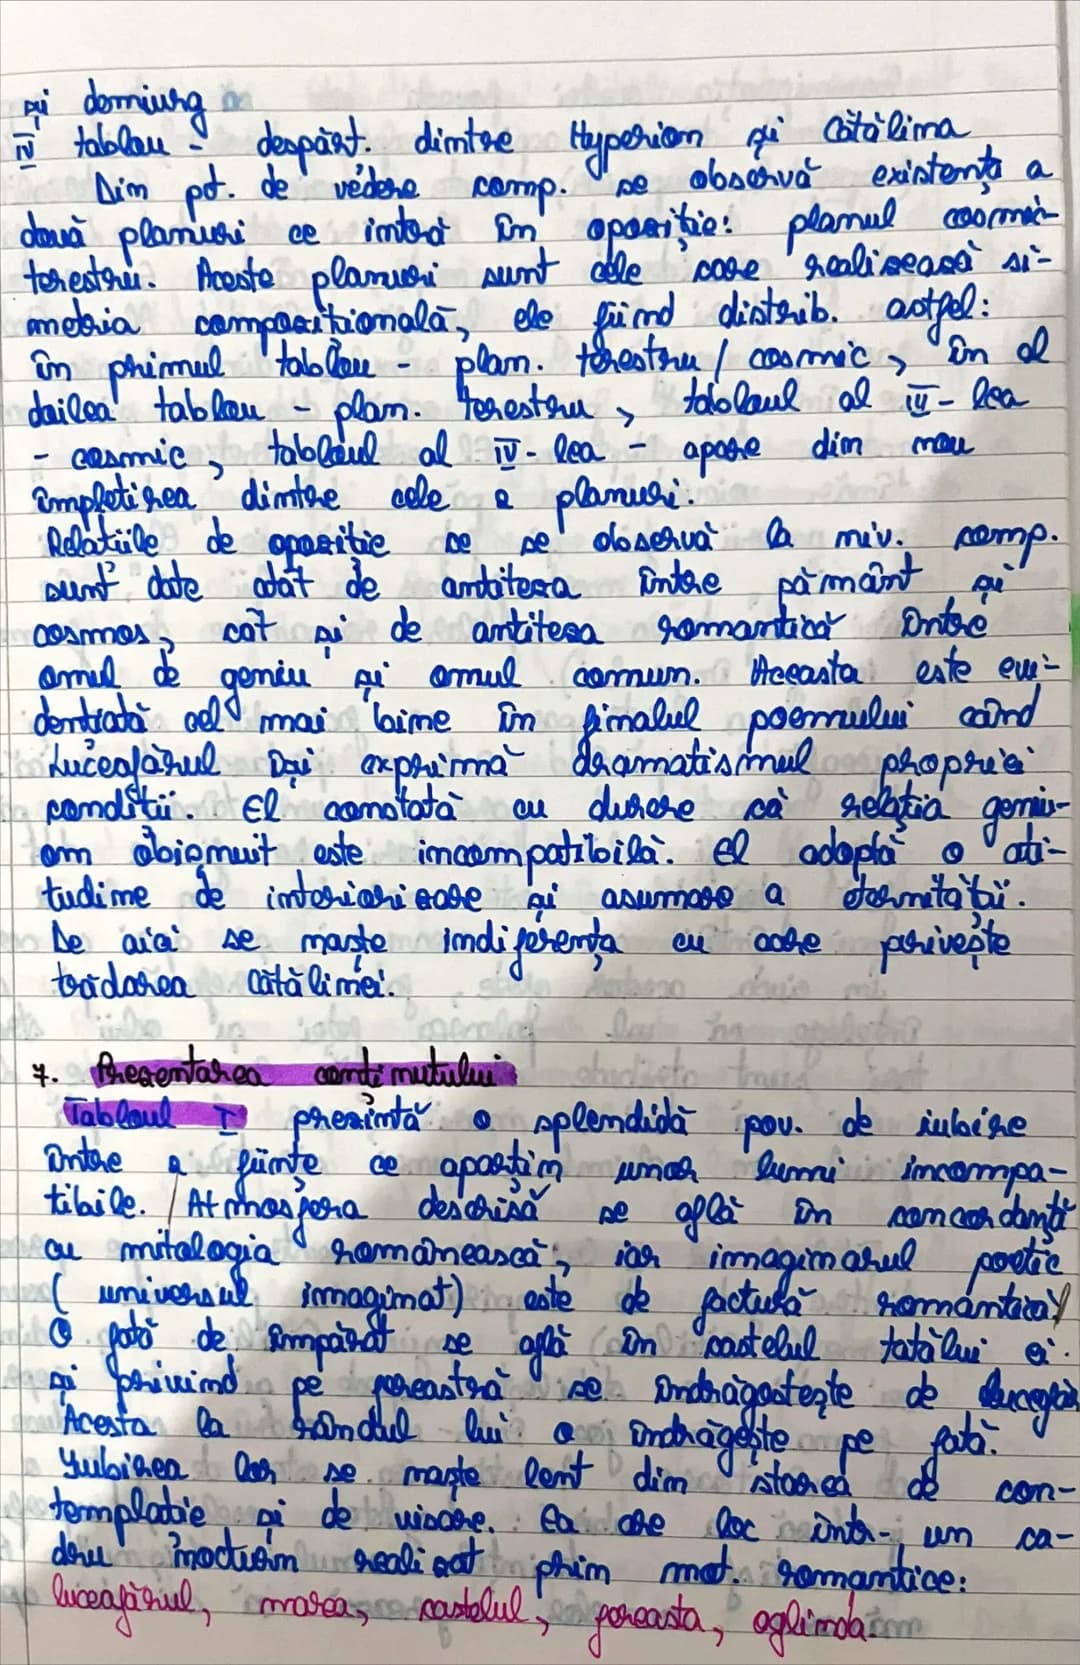 și demiurg
IV tablau - despărt. dintre Hyperion și Cătălina
Din pt. de vedere comp. se observă existența a
două planuri ce intră în opoziție: planul cosmic-
terestru. Aceste planuri sunt cele care realisează si-
metria compozițională, ele fiind distrib. astfel:
în primul tablau - plan. terestru / cosmic, în al
doilea tablau - plan. terestru, tabloul al III-lea
- cosmic, tabloul al IV-lea - apare din nou
împletirea dintre cele 2 planuri.
Relațiile de opoziție ce se observă la niv. comp.
sunt date atât de antiteza între pământ și
cosmos, cât și de antiteza romantică între
omul de geniu și omul comun. Aceasta este evi-
dențiată cel mai bine în finalul poemului când
Luceafărul își exprimă dramatismul propriei
condiții. El constată cu durere că relația geniu-
om obișnuit este incompatibilă. El adoptă o ati-
tudine de interiorizare și asumare a eternității.
De aici se naște indiferența cu care privește
trădarea Cătălinei.
7. Prezentarea conținutului
Tabloul I prezintă o splendidă pov. de iubire
între 2 ființe ce aparțin unor lumi incompa-
tibile. / Atmosfera descrisă se află în concordanță
cu mitologia românească, iar imaginarul poetic
( universul imaginat) este de factură romantică/
O fată de împărat se află în castelul tatălui ei.
și privind pe fereastră se îndrăgostește de luceafăr
Acesta la rândul lui o îndrăgește pe fată.
Iubirea lor se naște lent din starea de con-
templație și de visare. Ea are loc într-un ca-
dru nocturn realizat prin mot. romantice:
luceafărul, marea, castelul, fereasta, oglinda.